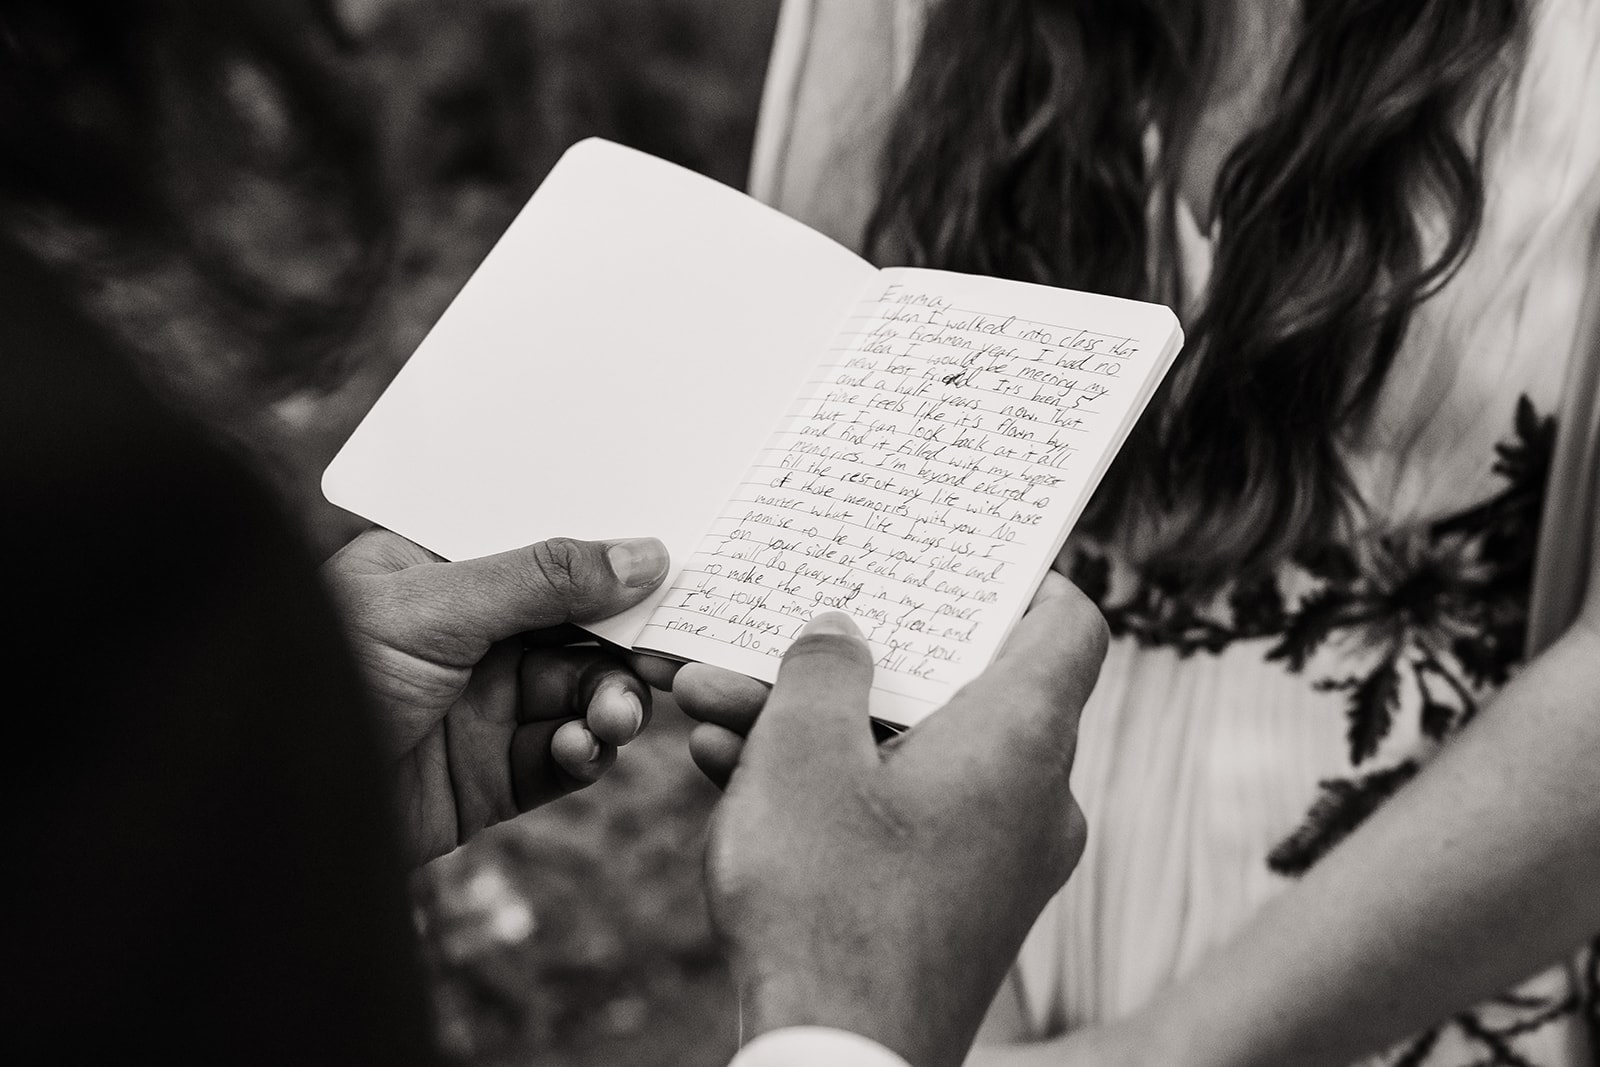 Emma,
When I walked into class that
day freshman year, I had no
idea I would be meeting my
new best friend. It's been 5
and a half years now. That
time feels like it's flown by,
but I can look back at it all
and find it filled with my happiest
memories. I'm beyond excited to
fill the rest of my life with more
of those memories with you. No
matter what life brings us, I
promise to be by your side and
on your side at each and every turn
I will do everything in my power
to make the good times great and
the tough times
I will always I love you.
time. No All the